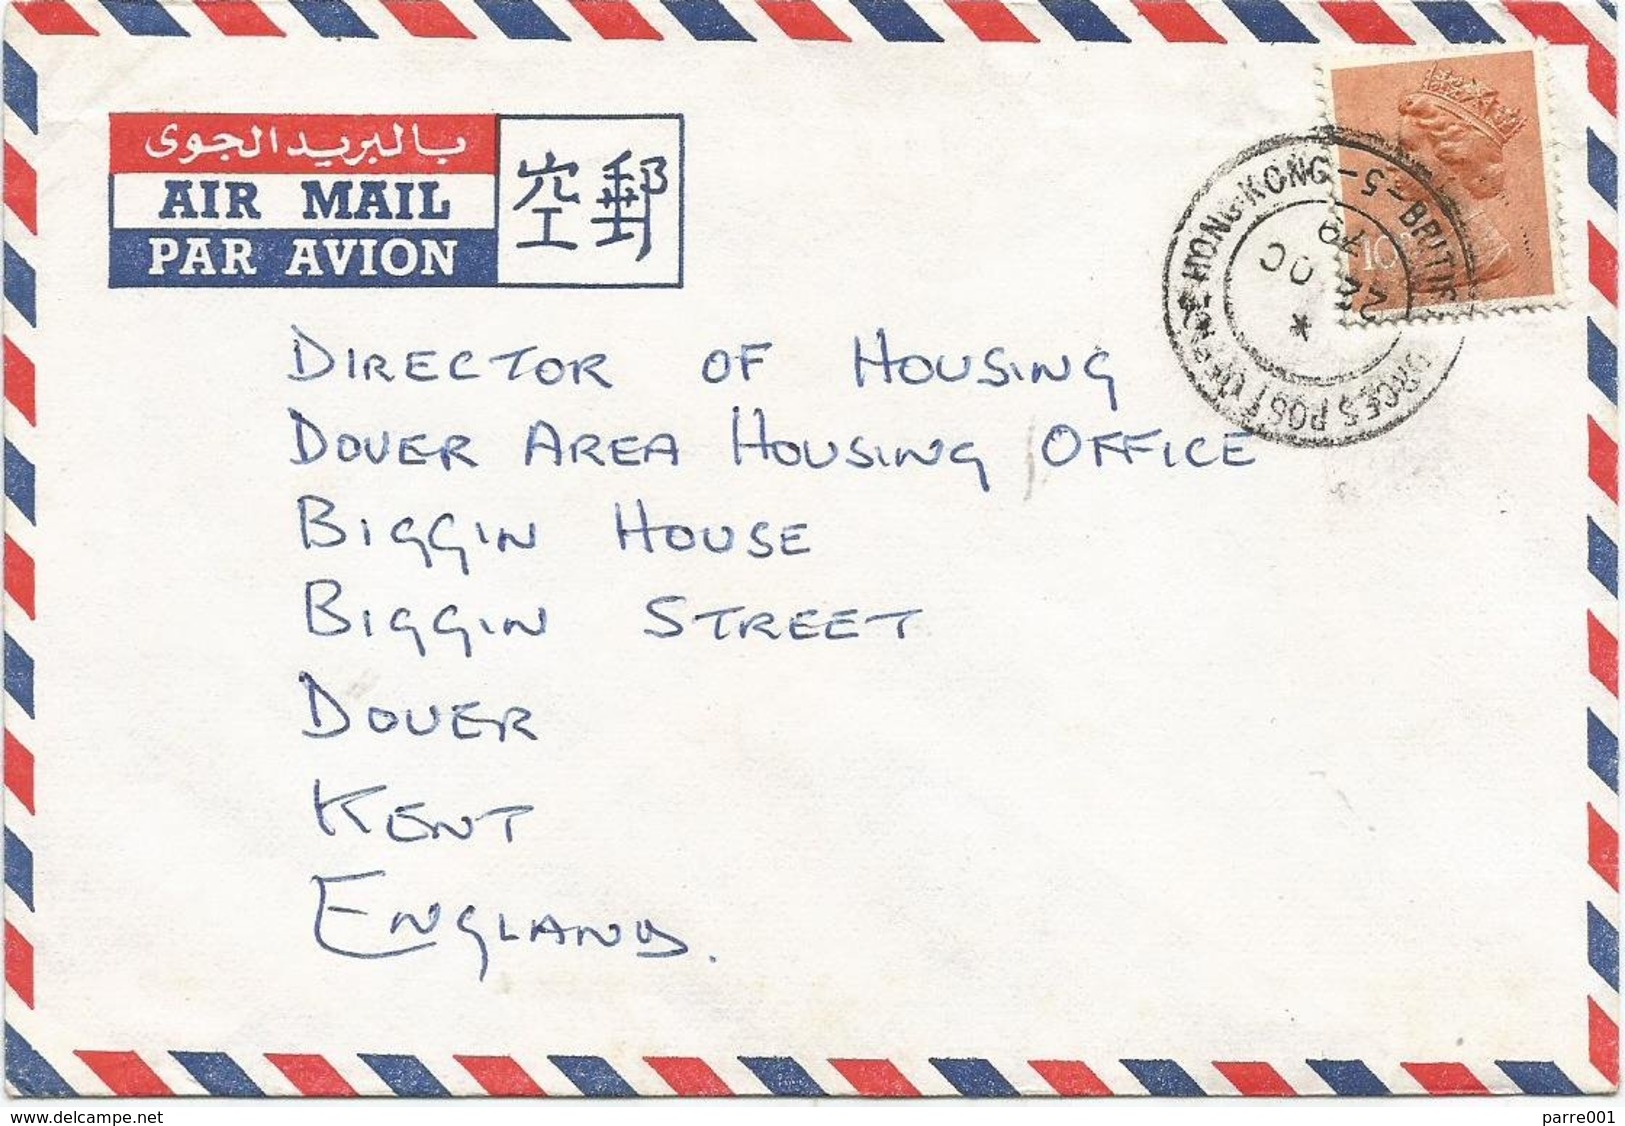 بالبريد الجوى
AIR MAIL
PAR AVION
空郵
HONG KONG -5- BRITISH FORCES POST OFFICE
22 OC
79
*
10P
DIRECTOR OF HOUSING
DOVER AREA HOUSING OFFICE
BIGGIN HOUSE
BIGGIN STREET
DOVER
KENT
ENGLAND.
www.delcampe.net
parre001